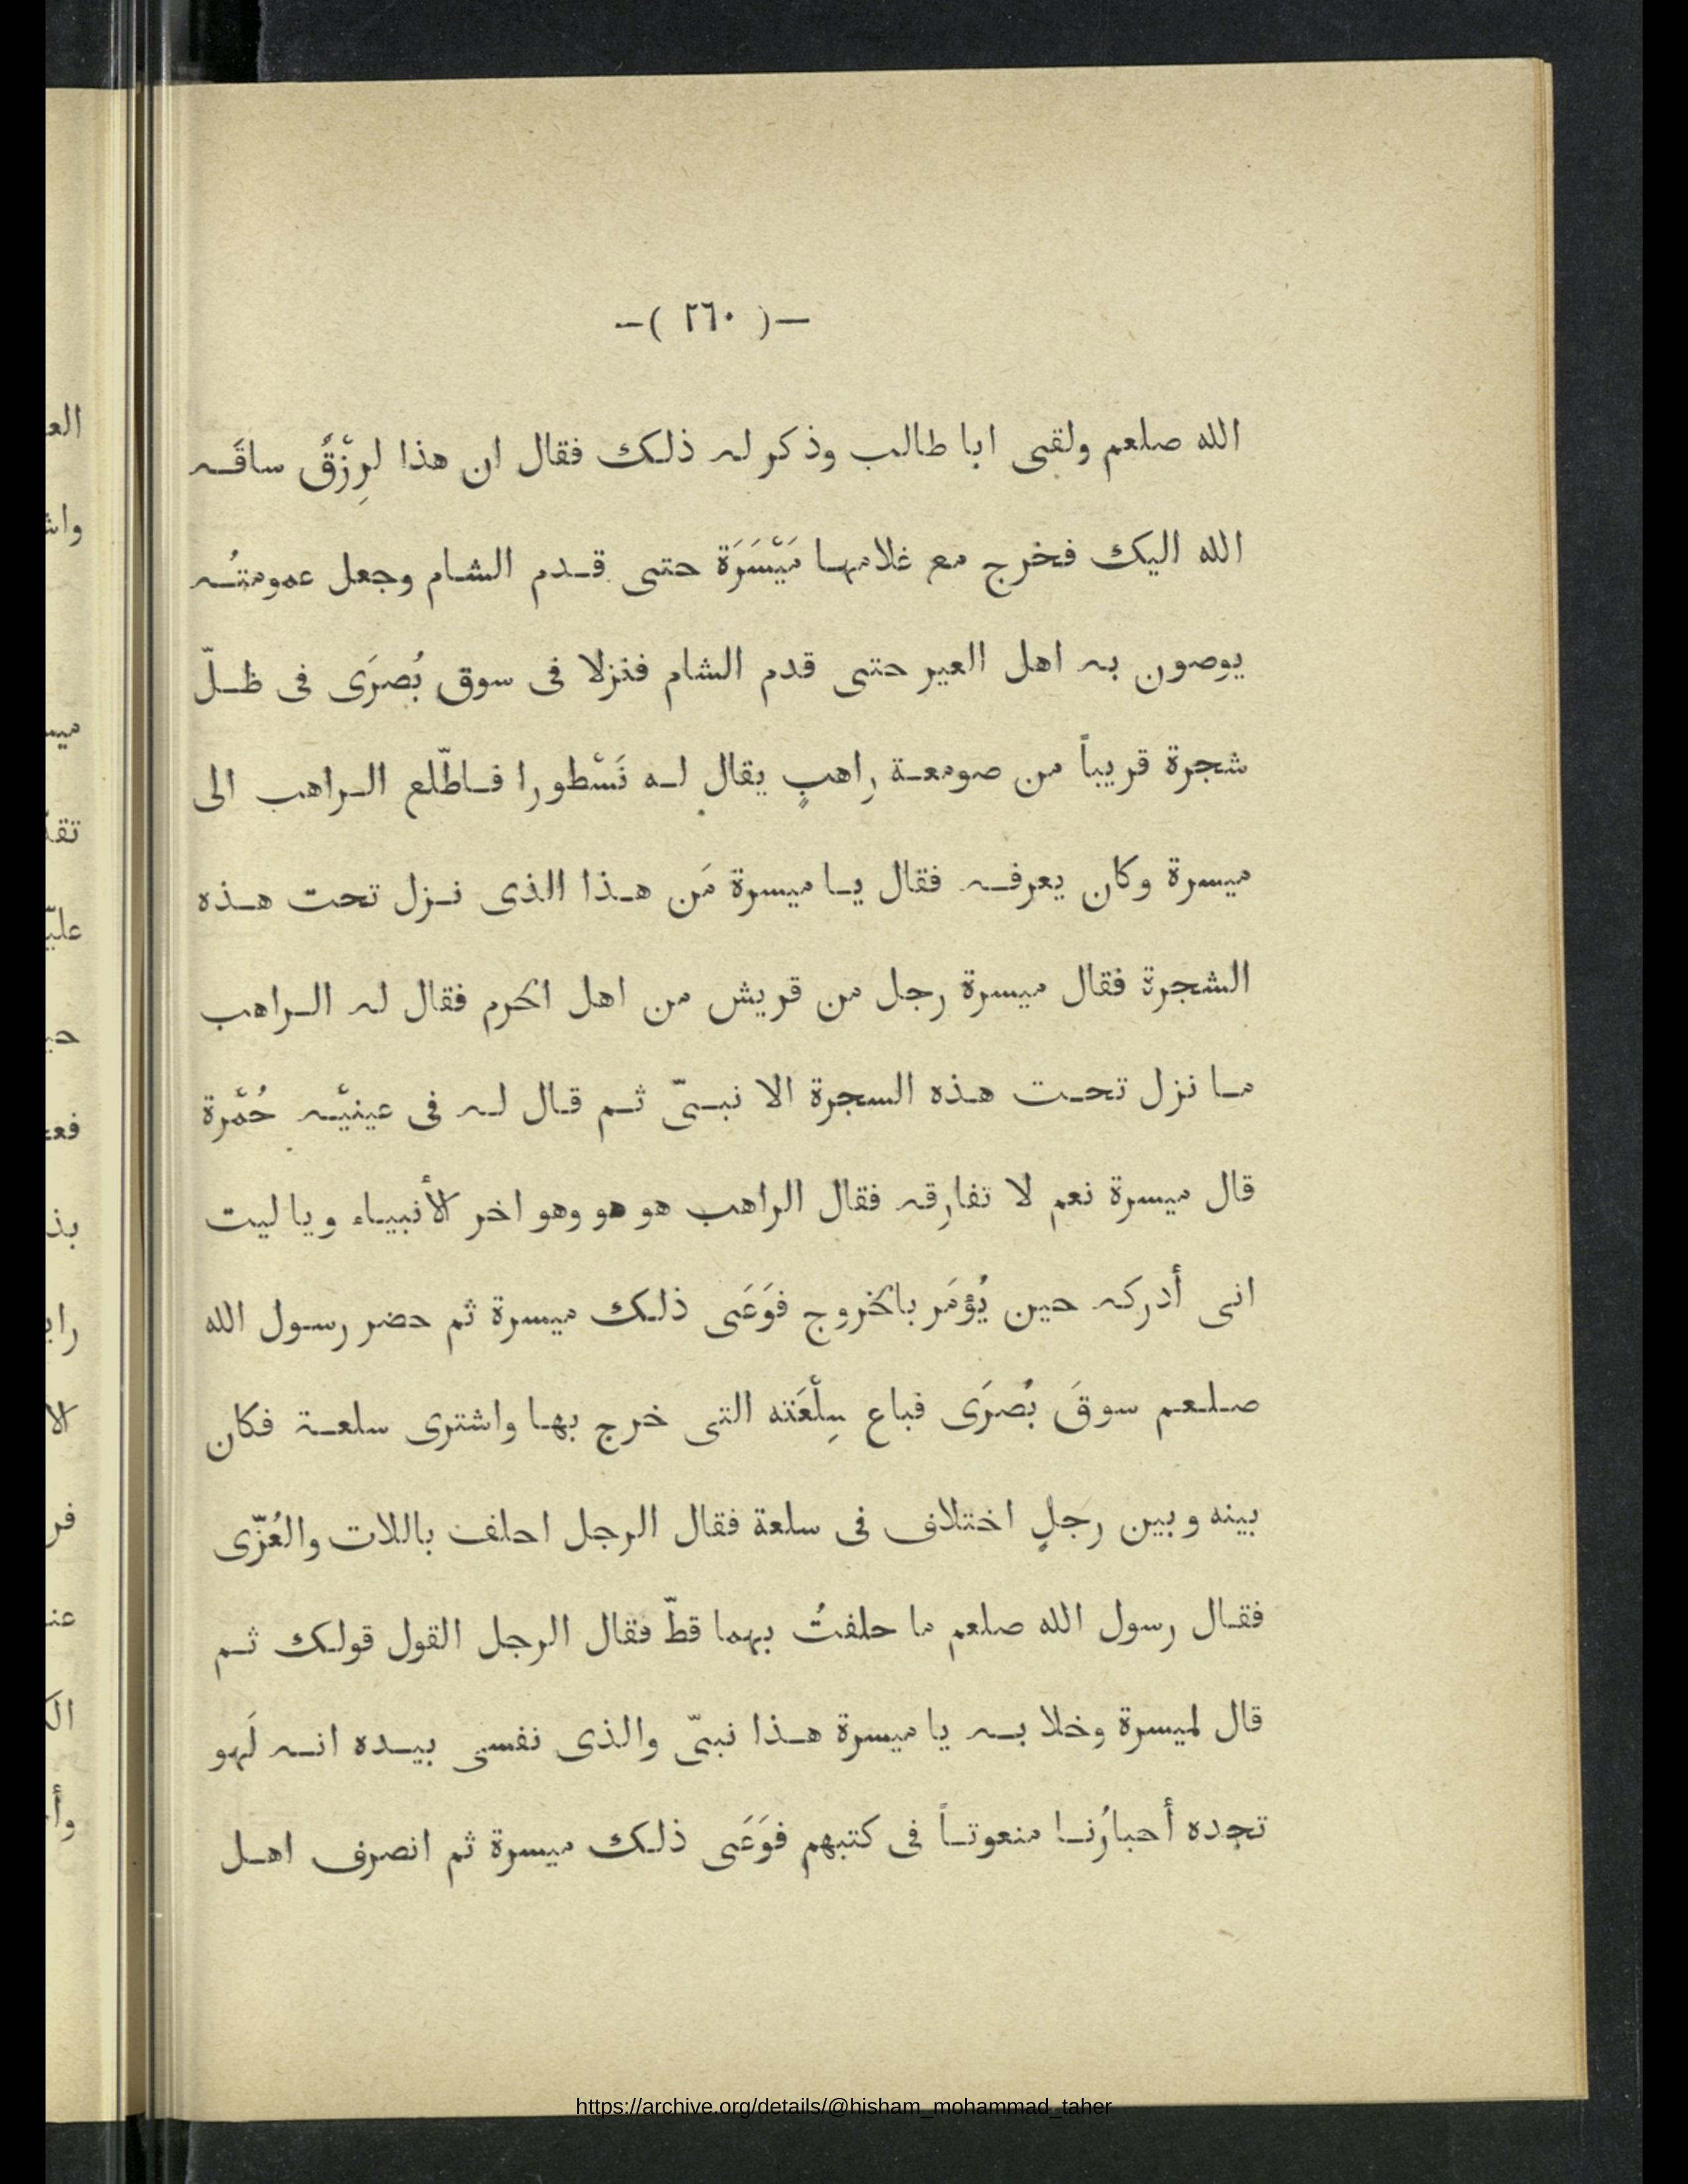 —( ٢٦٠ )—
الله صلعم ولقى ابا طالب وذكر له ذلك فقال ان هذا لرِزْقٌ ساقَه
الله اليك فخرج مع غلامها مَيْسَرَة حتى قدم الشام وجعل عمومتُه
يوصون به اهل العير حتى قدم الشام فنزلا فى سوق بُصرَى فى ظلّ
شجرة قريباً من صومعة راهبٍ يقال له نَسْطورا فاطّلع الراهب الى
ميسرة وكان يعرفه فقال يا ميسرة مَن هذا الذى نزل تحت هذه
الشجرة فقال ميسرة رجل من قريش من اهل الحرم فقال له الراهب
ما نزل تحت هذه السجرة الا نبىّ ثم قال له فى عينيْه حُمْرة
قال ميسرة نعم لا تفارقه فقال الراهب هو هو وهو اخر الأنبياء ويا ليت
انى أدركه حين يُؤمَر بالخروج فوَعَى ذلك ميسرة ثم حضر رسول الله
صلعم سوقَ بُصرَى فباع سِلْعَته التى خرج بها واشترى سلعة فكان
بينه وبين رجلٍ اختلاف فى سلعة فقال الرجل احلف باللات والعُزّى
فقال رسول الله صلعم ما حلفتُ بهما قطّ فقال الرجل القول قولك ثم
قال لميسرة وخلا به يا ميسرة هذا نبىّ والذى نفسى بيده انه لَهو
تجده أحبارُنا منعوتاً فى كتبهم فوَعَى ذلك ميسرة ثم انصرف اهل
https://archive.org/details/@hisham_mohammad_taher